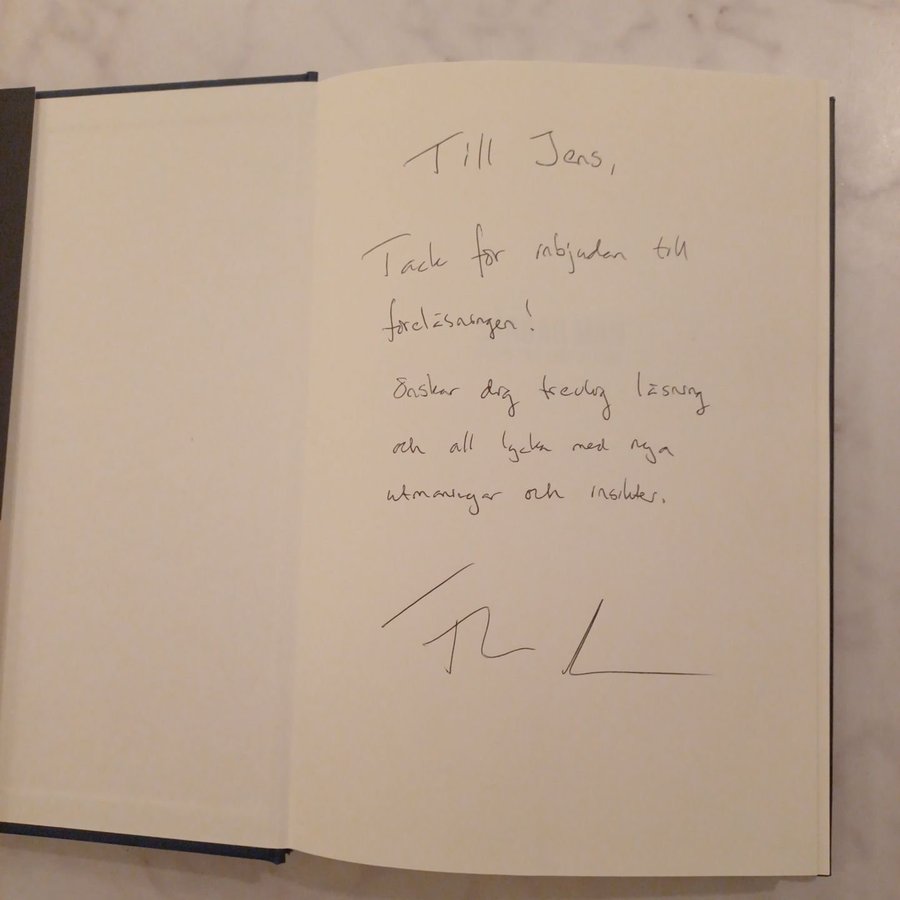 Till Jens,
Tack för inbjudan till
föreläsningen!
Önskar dig trevlig läsning
och all lycka med nya
utmaningar och insikter.